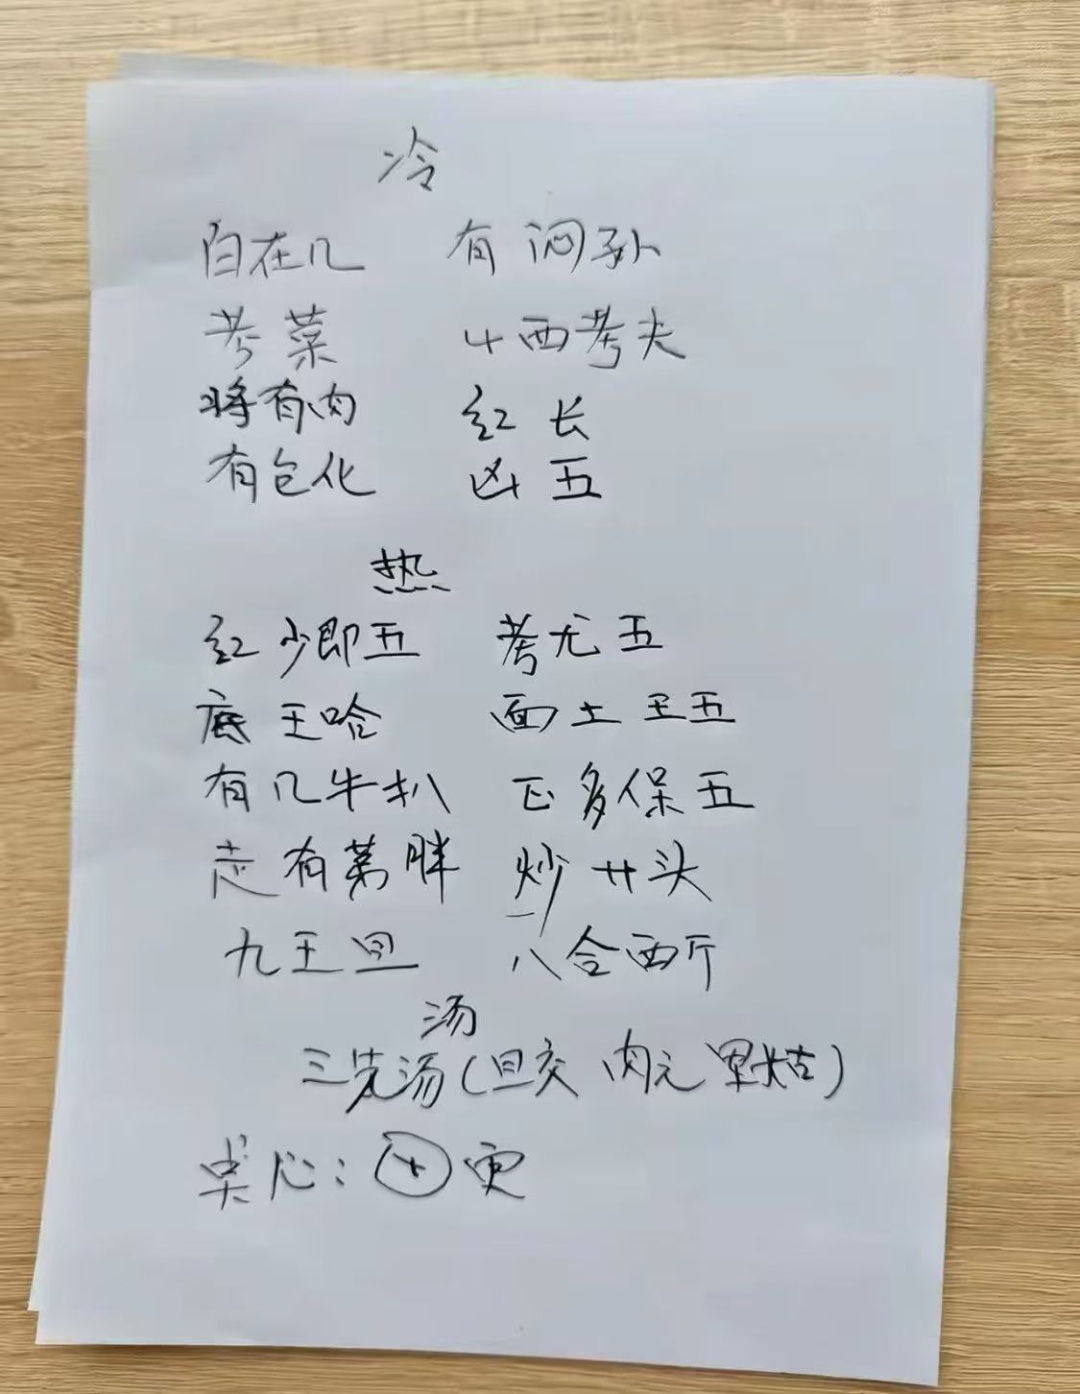 冷
白在几 有闷孙
考菜 4西考夫
将有肉 红长
有包化 凶五
热
红少即五 考尤五
底王哈 面土王五
有几牛扒 正多保五
走有第胖 炒廿头
九王旦 八合西斤
汤
三先汤(旦交 肉元 里姑)
点心: 更